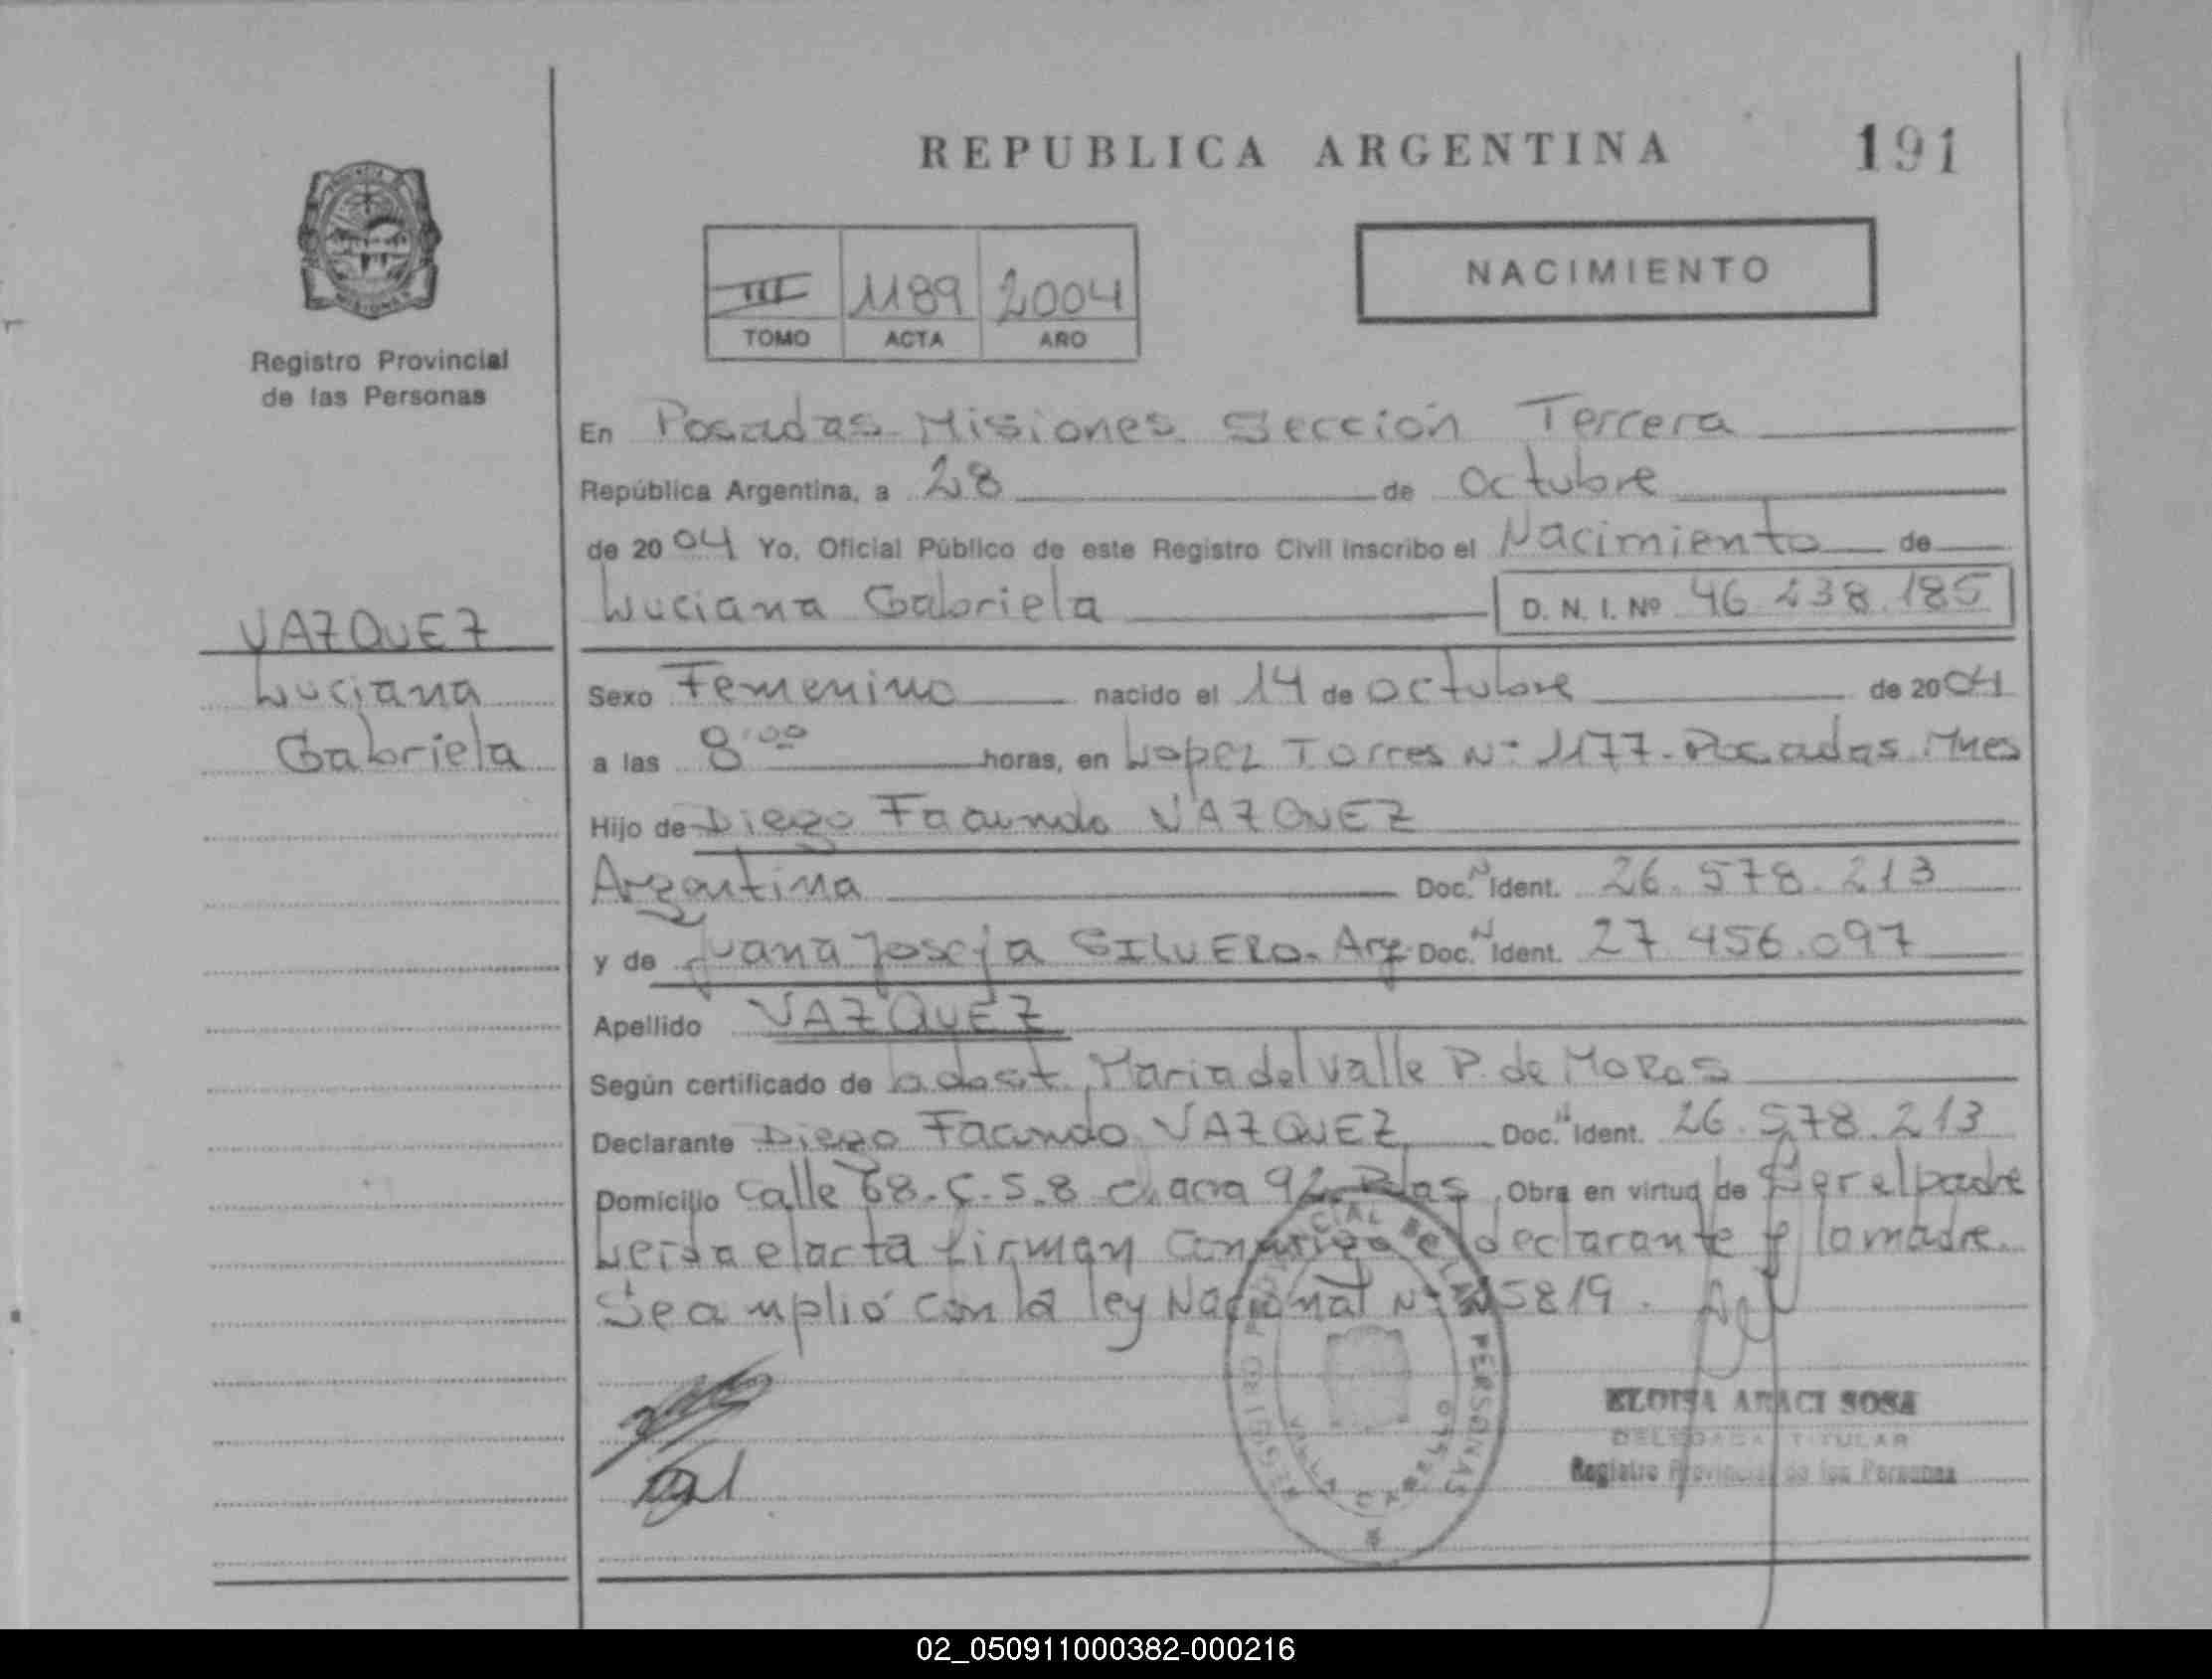 REPUBLICA ARGENTINA
191
III 1189 2004
TOMO ACTA AÑO
NACIMIENTO
Registro Provincial
de las Personas
VAZQUEZ
Luciana
Gabriela
En Posadas Misiones Sección Tercera
República Argentina, a 28 de octubre
de 2004 Yo, Oficial Público de este Registro Civil inscribo el Nacimiento de
Luciana Gabriela D. N. I. Nº 46.238.185
Sexo Femenino nacido el 14 de octubre de 2004
a las 8:00 horas, en Lopez Torres Nº 1177-Posadas Mnes
Hijo de Diego Facundo VAZQUEZ
Argentina Doc. N Ident. 26.578.213
y de Juana Josefa SILVERO. Arg. Doc. N Ident. 27.456.097
Apellido VAZQUEZ
Según certificado de Maria del Valle P. de MoRas
Declarante Diego Facundo VAZQUEZ Doc. N Ident. 26.578.213
Domicilio Calle 68-C-S.8 chacra 92. Pdas, Obra en virtud de Ser el padre
Leida el acta firman conmigo el declarante y la madre.
Se amplió con la ley Nacional Nº 25819.
REGISTRO PROVINCIAL DE LAS PERSONAS
ELOISA ARACI SOSA
DELEGADA TITULAR
Registro Provincial de las Personas
02_050911000382-000216